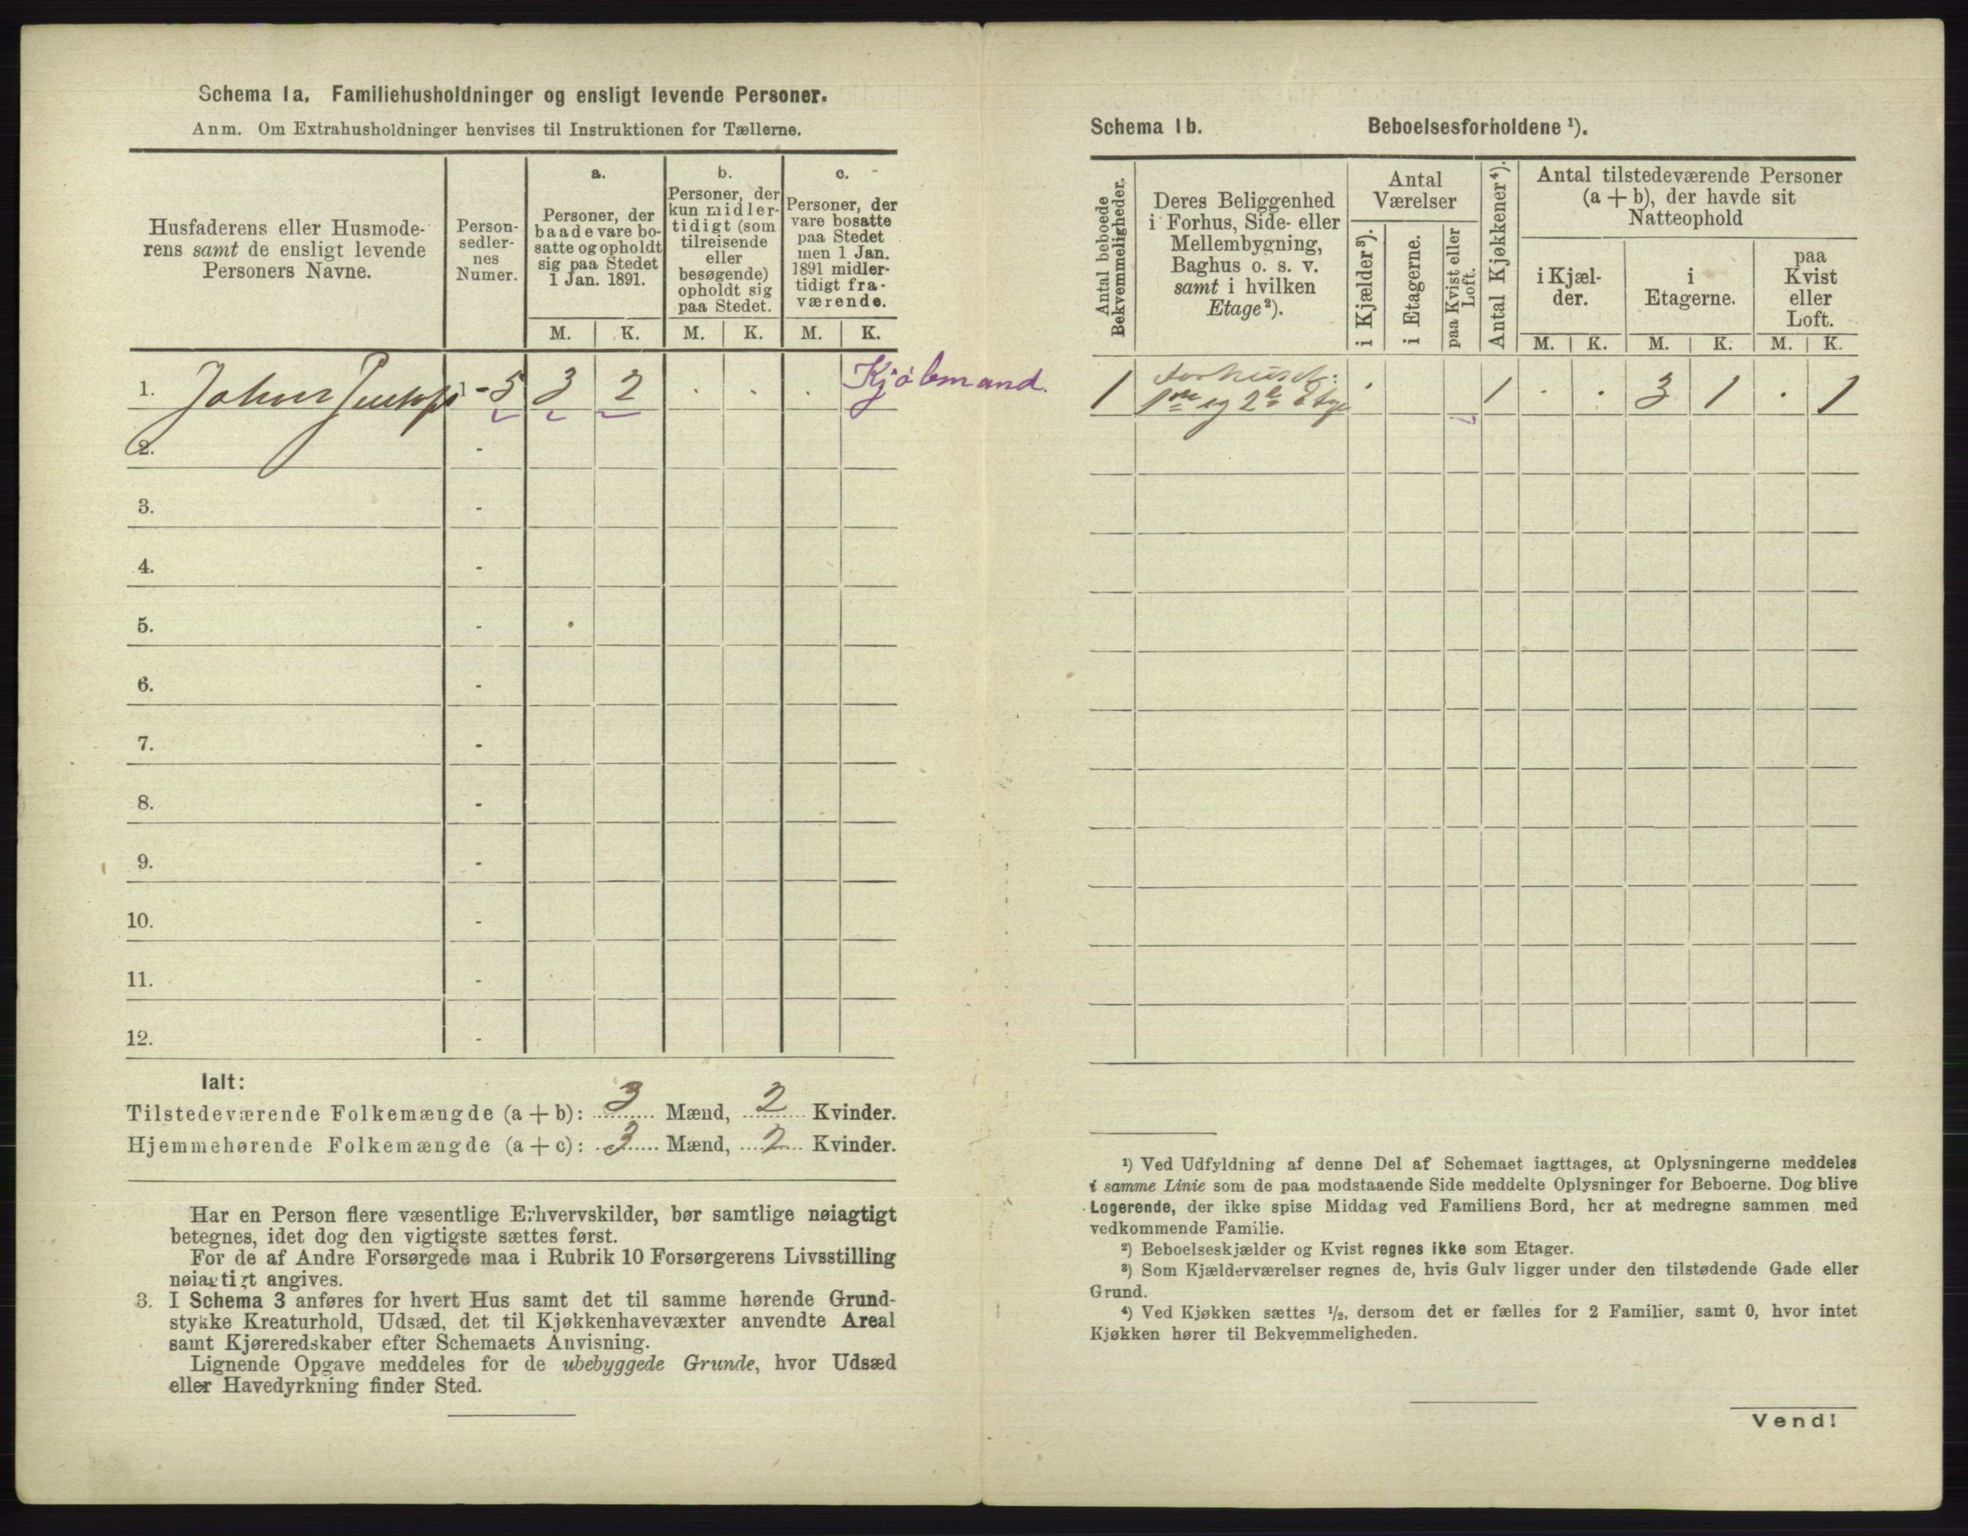 Schema 1a. Familiehusholdninger og ensligt levende Personer.
Anm. Om Extrahusholdninger henvises til Instruktionen for Tællerne.
Husfaderens eller Husmode-
rens samt de ensligt levende
Personers Navne.
Person-
sedler-
nes
Numer.
a.
Personer, der
baade vare bo-
satte og opholdt
sig paa Stedet
1 Jan. 1891.
b.
Personer, der
kun midler-
tidigt (som
tilreisende
eller
besøgende)
opholdt sig
paa Stedet.
c.
Personer, der
vare bosatte
paa Stedet
men 1 Jan.
1891 midler-
tidigt fra-
værende.
M. K. M. K. M. K.
1. Johns 1 - 5 3 2 . . . Kjøbmand.
2. -
3. -
4. -
5. -
6. -
7. -
8. -
9. -
10. -
11. -
12. -
Ialt:
Tilstedeværende Folkemængde (a + b): 3 Mænd, 2 Kvinder.
Hjemmehørende Folkemængde (a + c): 3 Mænd, 2 Kvinder.
Har en Person flere væsentlige Erhvervskilder, bør samtlige nøiagtigt
betegnes, idet dog den vigtigste sættes først.
For de af Andre Forsørgede maa i Rubrik 10 Forsørgerens Livsstilling
nøiagtigt angives.
3. I Schema 3 anføres for hvert Hus samt det til samme hørende Grund-
stykke Kreaturhold, Udsæd, det til Kjøkkenhavevæxter anvendte Areal
samt Kjøreredskaber efter Schemaets Anvisning.
Lignende Opgave meddeles for de ubebyggede Grunde, hvor Udsæd
eller Havedyrkning finder Sted.
Schema 1b. Beboelsesforholdene ¹).
Antal beboede
Bekvemmeligheder.
Deres Beliggenhed
i Forhus, Side- eller
Mellembygning,
Baghus o. s. v.
samt i hvilken
Etage ²).
Antal
Værelser
i Kjælder ³).
i Etagerne.
paa Kvist eller
Loft.
Antal Kjøkkener ⁴).
Antal tilstedeværende Personer
(a + b), der havde sit
Natteophold
i Kjæl-
der.
i
Etagerne.
paa
Kvist
eller
Loft.
M. K. M. K. M. K.
1 Forhuset: 1 . . 3 1 . 1
1ste og 2den Etage
¹) Ved Udfyldning af denne Del af Schemaet iagttages, at Oplysningerne meddeles
i samme Linie som de paa modstaaende Side meddelte Oplysninger for Beboerne. Dog blive
Logerende, der ikke spise Middag ved Familiens Bord, her at medregne sammen med
vedkommende Familie.
²) Beboelseskjælder og Kvist regnes ikke som Etager.
³) Som Kjælderværelser regnes de, hvis Gulv ligger under den tilstødende Gade eller
Grund.
⁴) Ved Kjøkken sættes ½, dersom det er fælles for 2 Familier, samt 0, hvor intet
Kjøkken hører til Bekvemmeligheden.
Vend!